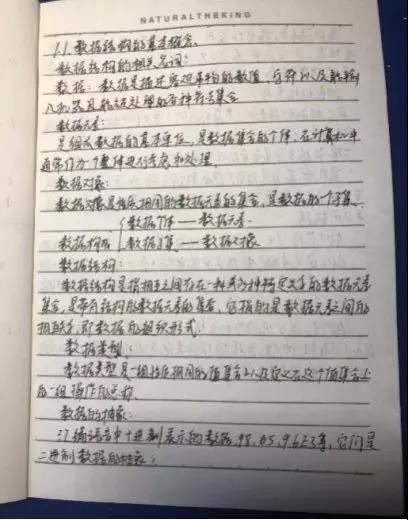 NATURALTHEKING
1.1 数据结构的基本概念。
数据结构的相关名词:
数据: 数据是描述客观事物的数值、字符以及能输
入机器且能被处理的各种符号集合
数据元素:
是组成数据的基本单位,是数据集合的个体,在计算机中
通常作为一个整体进行考虑和处理.
数据对象:
数据对象是性质相同的数据元素的集合,是数据的一个子集.
数据个体——数据元素.
数据构成
数据子集——数据对象
数据结构:
数据结构是指相互之间存在一种或多种特定关系的数据元素
集合,是带有结构的数据元素的集合,它指的是数据元素之间的
相互关系,即数据的组织形式.
数据类型:
数据类型是一组性质相同的值集合以及定义在这个值集合上
的一组操作的总称.
数据的抽象:
汇编语言中十进制表示的数据98.65、9.6E3等,它们是
二进制数据的抽象;